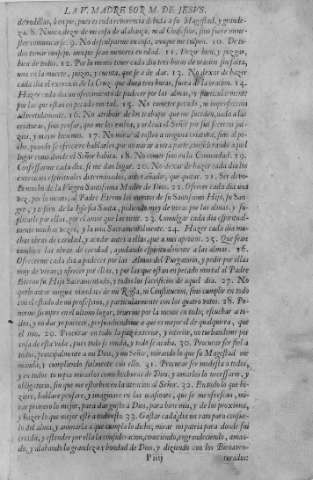 LA V. MADRE SOR M. DE JESVS.
de rodillas, ò en pie, pues es toda reverencia debida à su Magestad, y grande-
za. 8. Nunca dezir de mi cosa de alabança, ni al Confessor, sino fuere menes-
ter comunicarse. 9. No disculparme en cosa, aunque no culpen. 10. De to-
dos tomar consejo, aunque sean menores en edad. 11. Pensar bien, y juzgar
bien de todos. 12. Por lo menos cada dia tres horas de oracion sin falta,
una en la muerte, juizio, y cuenta, que se ha de dar. 13. No dexar de hazer
cada dia el exercicio de la Cruz, que dura tres horas, fuera de la oracion. 14.
Hazer cada dia un ofrecimiento de padecer por las almas, y
por las que estàn en pecado mortal. 15. No cometer pecado, ni imperfeccion
advertidamente. 16. No atribuir de los trabajos que me sucedan, nada à las
criaturas, sino pensar, que me los embia, y ordena el Señor por sus secretos jui-
zios, y mayor bien mio. 17. No mirar al rostro à ninguna criatura, sino al pe-
cho, quando se ofreciere hablarles, que no mirar à otra parte, considerando aquel
lugar como donde el Señor habita. 18. No comer fuera de la Comunidad. 19.
Confessarme cada dia, si me dàn lugar. 20. No dexar de hazer cada dia los
exercicios espirituales determinados, antes añadir, que quitar. 21. Ser devo-
tissima de la Virgen Santissima Madre de Dios. 22. Ofrecer cada dia una
vez, por lo menos, al Padre Eterno los meritos de su Santissimo Hijo, su San-
gre, y los de la Iglesia Santa, pidiendo muy de veras por las almas, y su-
plicarle por ellas, por el amor que las tiene. 23. Comulgar cada dia espiritual-
mente muchas vezes, y la una Sacramentalmente. 24. Hazer cada dia mu-
chas obras de caridad, y acudir antes à ellas, que à mis gustos. 25. Que sean
tambien las obras de caridad, ayudando espiritualmente à las almas. 26.
Ofrecerme cada dia à padecer por las Almas del Purgatorio, y pedir por ellas
muy de veras, y ofrecer por ellas, y por las que estàn en pecado mortal al Padre
Eterno su Hijo Sacramentado, y todos los sacrificios de aquel dia. 27. No
quebrantar ninguna menudencia de mi Regla, ni Constitucion, sino cumplir en todo
con el estado de mi profession, y particularmente con los quatro votos. 28. Po-
nerme siempre en el ultimo lugar, tenerme por la menor en todo, escuchar à to-
dos, y no dar pareceres, persuadiendome à que es mejor el de qualquiera, que
el mio. 29. Procurar en todo la paz exterior, y interior, no turbandome por
cosa de esta vida, pues todo se muda, y todo se acaba. 30. Procurar ser fiel à
todos, principalmente à mi Dios, y mi Señor, mirando lo que su Magestad me
manda, y cumpliendo fielmente con ello. 31. Procurar ser modesta à todos,
y en todas mirarlas como hechuras de Dios, y amarlos lo necessario, y
obligatorio, sin que me estorben en la atencion al Señor. 32. En todo lo que hi-
ziere, hablare, pensare, y imaginare en las ocasiones, que se me ofrezcan, mi-
rar primero lo mejor, para dar gusto à Dios, para bien mio, y de los proximos,
y hazer lo que mejor està à todo esto. 33. Gastar cada dia un rato para consue-
lo del alma, y animarla à que cumpla lo dicho, mirar mi patria para donde fui
criada, y estender por ella la consideracion, conociendo, engrandeciendo, aman-
do, y alabando la grandeza, y bondad de Dios, y diziendo con los Bienaven-
P iiij turados: